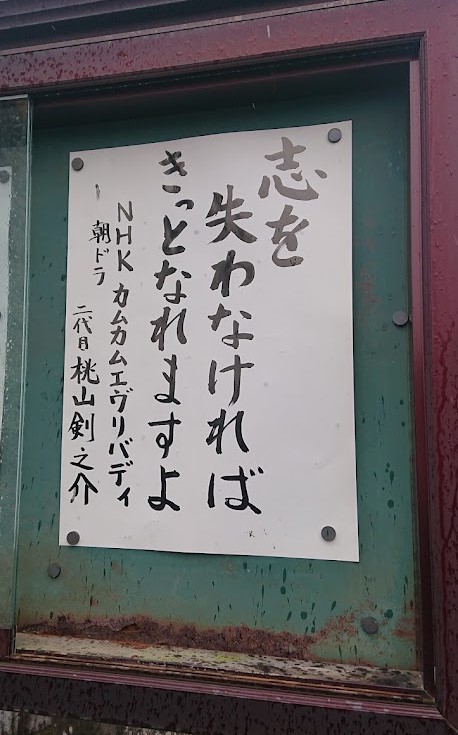 志を
失わなければ
きっとなれますよ
NHKカムカムエヴリバディ
朝ドラ 二代目桃山剣之介